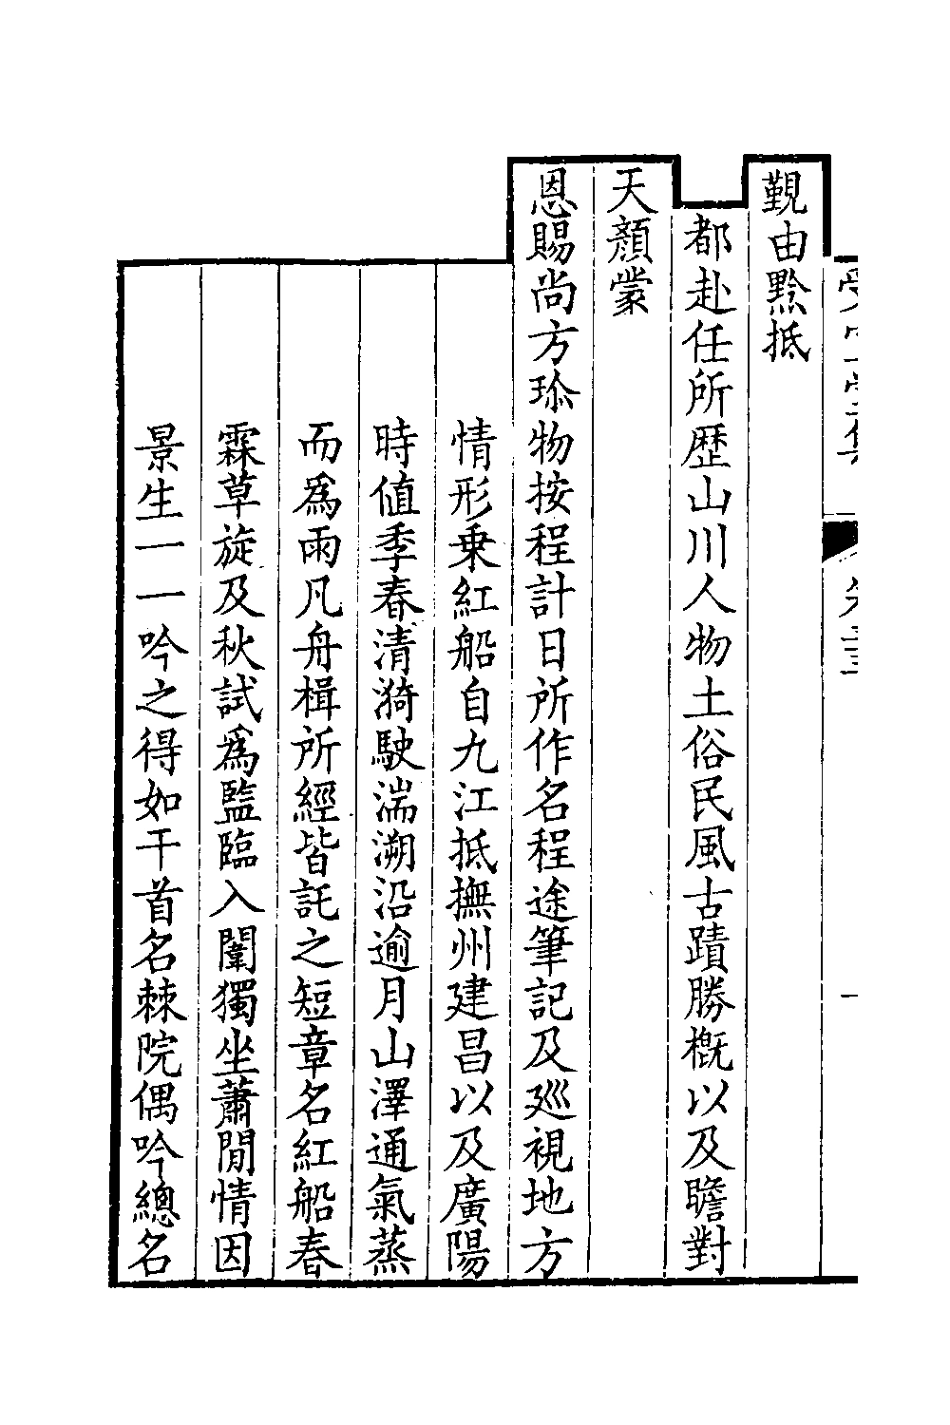 覲由黔抵
都赴任所歴山川人物土俗民風古蹟勝概以及瞻對
天顔蒙
恩賜尚方珎物按程計日所作名程途筆記及廵視地方
情形乗紅船自九江抵撫州建昌以及廣陽
時値季春清漪駛湍溯沿逾月山澤通氣蒸
而爲雨凡舟楫所經皆託之短章名紅船春
霖草旋及秋試爲監臨入闈獨坐蕭閒情因
景生一一吟之得如干首名棘院偶吟總名